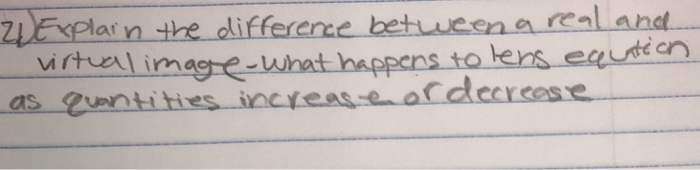 21) Explain the difference between a real and
virtual image - what happens to lens equation
as quantities increase or decrease